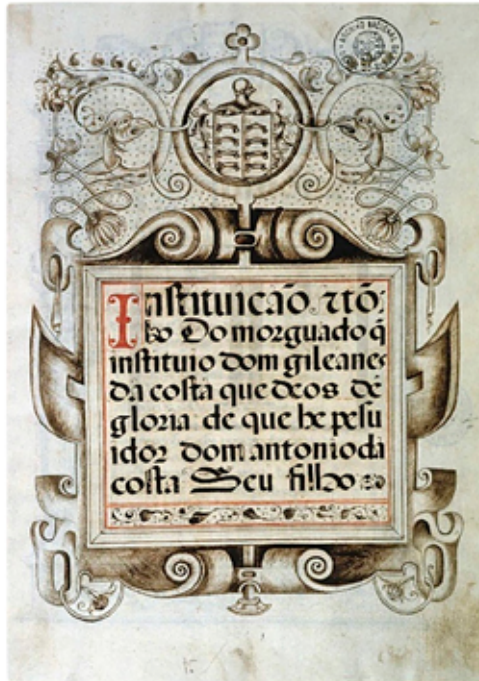 Instituicão &tõ:
bo Do morguado q̃
instituio dom gileanes
da costa que deos dé
gloria de que he pesu
idor dom antonio da
costa Seu filho